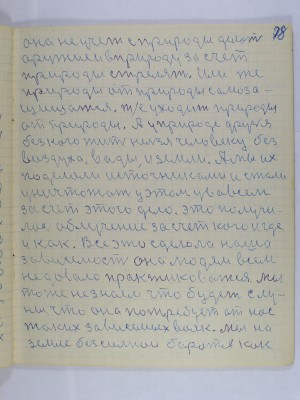 98
она не учеж с природы делат
оружие и природу за счет
природы стрелят. Или же
природы от природы самоза-
щищатся. т/е уходим природы
от природы. А у природе друг я
без ного жит нилзя человеку без
воздуха, воды, и земли. А мы их
поделали источниками и стали
уничтожат у этом увавсем
за счет этого дело. Это получи-
лос облучение за счет кого и где
и как. Все это сделала наша
зависимость она людям всем
не давала практиковатся. Мы
тоже не знаем что будет слу-
ны что она потребует от нас
таких зависимых волк. Мы на
земле бессилной боротся как